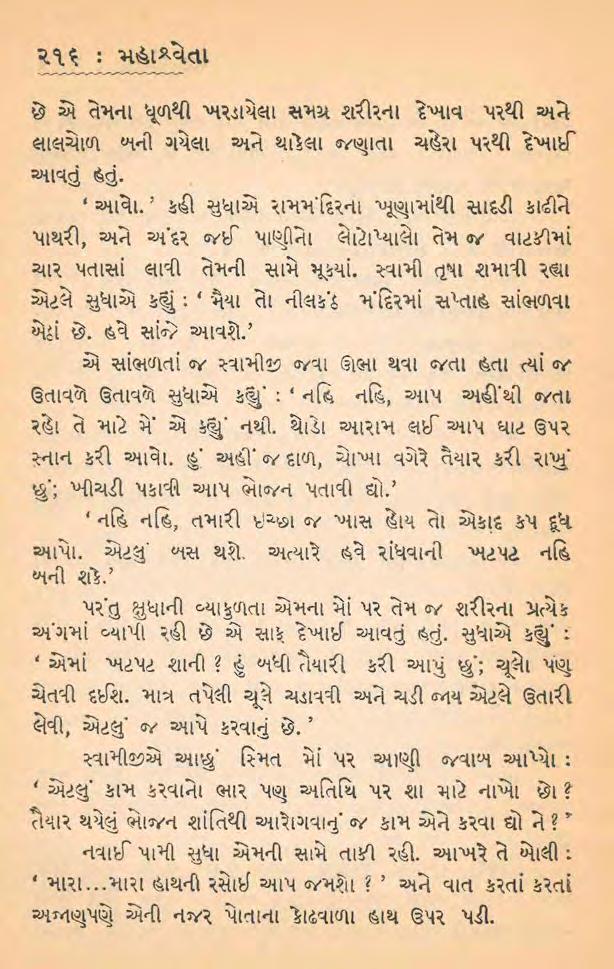 ૨૧૬ : મહાશ્વેતા
છે એ તેમના ધૂળથી ખરડાયેલા સમગ્ર શરીરના દેખાવ પરથી અને
લાલચોળ બની ગયેલા અને થાકેલા જણાતા ચહેરા પરથી દેખાઈ
આવતું હતું.
‘ આવો.’ કહી સુધાએ રામમંદિરના ખૂણામાંથી સાદડી કાઢીને
પાથરી, અને અંદર જઈ પાણીનો લોટોપ્યાલો તેમ જ વાટકીમાં
ચાર પતાસાં લાવી તેમની સામે મૂક્યાં. સ્વામી તૃષા શમાવી રહ્યા
એટલે સુધાએ કહ્યું : ‘ મૈયા તો નીલકંઠ મંદિરમાં સપ્તાહ સાંભળવા
બેઠાં છે. હવે સાંજે આવશે.’
એ સાંભળતાં જ સ્વામીજી જવા ઊભા થવા જતા હતા ત્યાં જ
ઉતાવળે ઉતાવળે સુધાએ કહ્યું : ‘ નહિ નહિ, આપ અહીંથી જતા
રહો તે માટે મેં એ કહ્યું નથી. થોડો આરામ લઈ આપ ઘાટ ઉપર
સ્નાન કરી આવો. હું અહીં જ દાળ, ચોખા વગેરે તૈયાર કરી રાખું
છું; ખીચડી પકાવી આપ ભોજન પતાવી દ્યો.’
‘ નહિ નહિ, તમારી ઇચ્છા જ ખાસ હોય તો એકાદ કપ દૂધ
આપો. એટલું બસ થશે. અત્યારે હવે રાંધવાની ખટપટ નહિ
બની શકે.’
પરંતુ ક્ષુધાની વ્યાકુળતા એમના મોં પર તેમ જ શરીરના પ્રત્યેક
અંગમાં વ્યાપી રહી છે એ સાફ દેખાઈ આવતું હતું. સુધાએ કહ્યું :
‘ એમાં ખટપટ શાની ? હું બધી તૈયારી કરી આપું છું; ચૂલો પણ
ચેતવી દઈશ. માત્ર તપેલી ચૂલે ચડાવવી અને ચડી જાય એટલે ઉતારી
લેવી, એટલું જ આપે કરવાનું છે. ’
સ્વામીજીએ આછું સ્મિત મોં પર આણી જવાબ આપ્યો :
‘ એટલું કામ કરવાનો ભાર પણ અતિથિ પર શા માટે નાખો છો ?
તૈયાર થયેલું ભોજન શાંતિથી આરોગવાનું જ કામ એને કરવા દ્યો ને ? ’
નવાઈ પામી સુધા એમની સામે તાકી રહી. આખરે તે બોલી :
‘ મારા...મારા હાથની રસોઈ આપ જમશો ? ’ અને વાત કરતાં કરતાં
અજાણપણે એની નજર પોતાના કોઢવાળા હાથ ઉપર પડી.